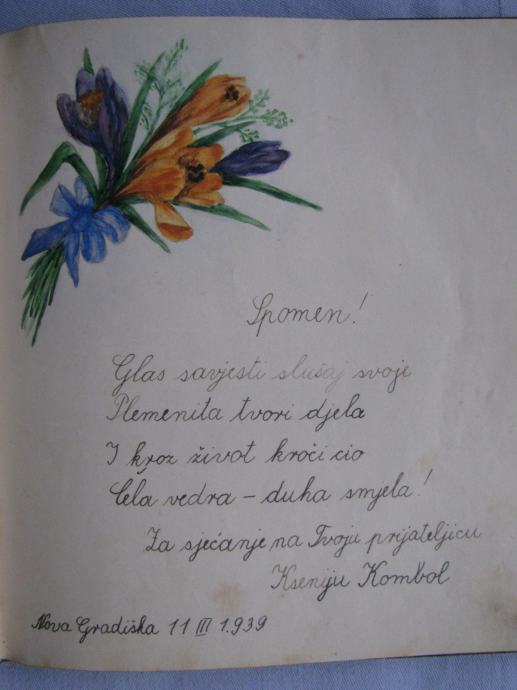 Spomen!
Glas savjesti slušaj svoje
Plemenita tvori djela
I kroz život kroči cio
Čela vedra - duha smjela!
Za sjećanje na Tvoju prijateljicu
Kseniju Kombol
Nova Gradiška 11 III 1.939